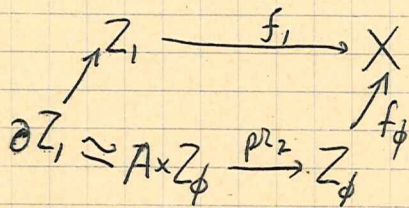 Z₁ f₁ X
∂Z₁ ≃ A × Z_ϕ pr₂ Z_ϕ f_ϕ